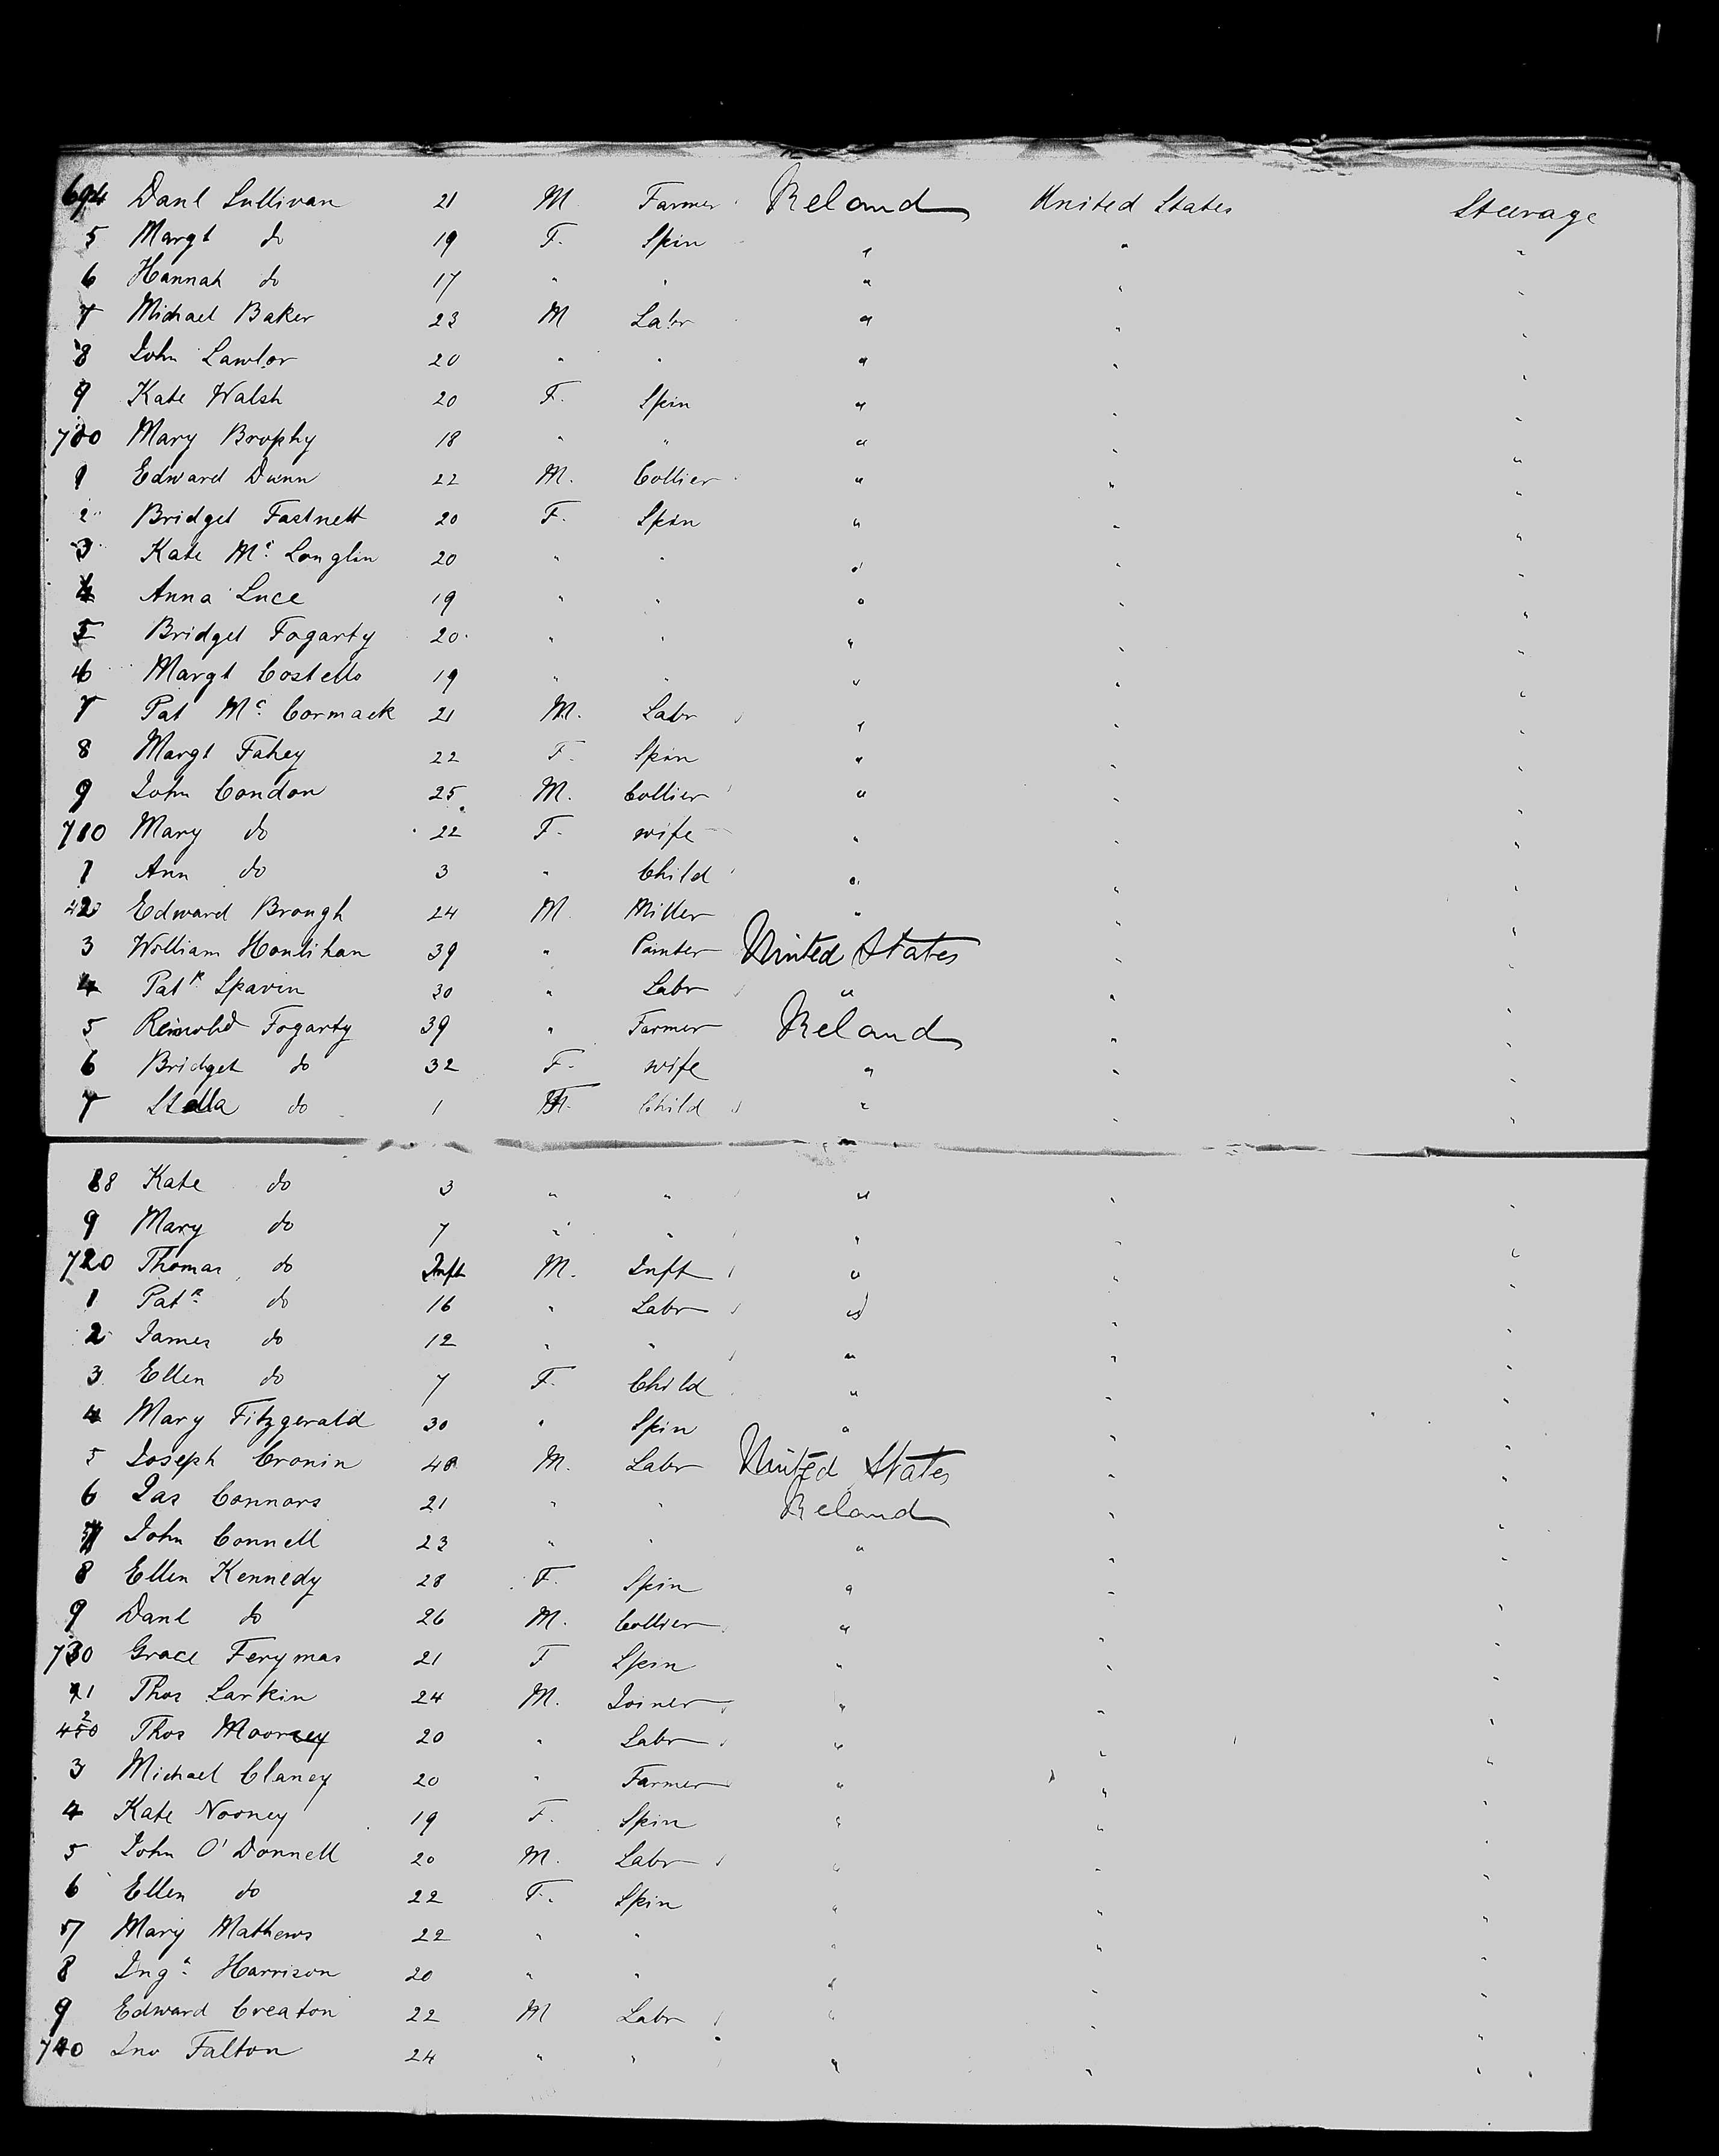 694 Danl Sullivan 21 M. Farmer Ireland United States Steerage
5 Margt do 19 F. Spin " " "
6 Hannah do 17 " " " " "
7 Michael Baker 23 M Labr " " "
8 John Lawlor 20 " " " " "
9 Kate Walsh 20 F. Spin " " "
700 Mary Brophy 18 " " " " "
1 Edward Dunn 22 M. Collier " " "
2 Bridget Fastnett 20 F. Spin " " "
3 Kate Mc Longlin 20 " " " " "
4 Anna Luce 19 " " " " "
5 Bridget Fogarty 20 " " " " "
6 Margt Costello 19 " " " " "
7 Pat Mc Cormack 21 M. Labr " " "
8 Margt Fahey 22 F. Spin " " "
9 John Condon 25 M. Collier " " "
710 Mary do 22 F. wife " " "
1 Ann do 3 " Child " " "
2 Edward Brough 24 M Miller " " "
3 William Honlihan 39 " Painter United States " "
4 Patk Spavin 30 " Labr " " "
5 Fogarty 39 " Farmer Ireland " "
6 Bridget do 32 F. wife " " "
7 Stella do 1 F. Child " " "
18 Kate do 3 " " " " "
9 Mary do 7 " " " " "
720 Thomas do Inft M. Inft " " "
1 Patk do 16 " Labr " " "
2 James do 12 " " " " "
3 Ellen do 7 F. Child " " "
4 Mary Fitzgerald 30 " Spin " " "
5 Joseph Cronin 40 M. Labr United States " "
6 Jas Connors 21 " " Ireland " "
7 John Connell 23 " " " " "
8 Ellen Kennedy 28 F. Spin " " "
9 Danl do 26 M. Collier " " "
730 Grace Ferymas 21 F Spin " " "
1 Thos Larkin 24 M. Joiner " " "
2 Thos Mooney 20 " Labr " " "
3 Michael Clancy 20 " Farmer " " "
4 Kate Nooney 19 F. Spin " " "
5 John O'Donnell 20 M. Labr " " "
6 Ellen do 22 F. Spin " " "
7 Mary Mathews 22 " " " " "
8 Harrison 20 " " " " "
9 Edward Creaton 22 M Labr " " "
740 Jno Falton 24 " " " " "